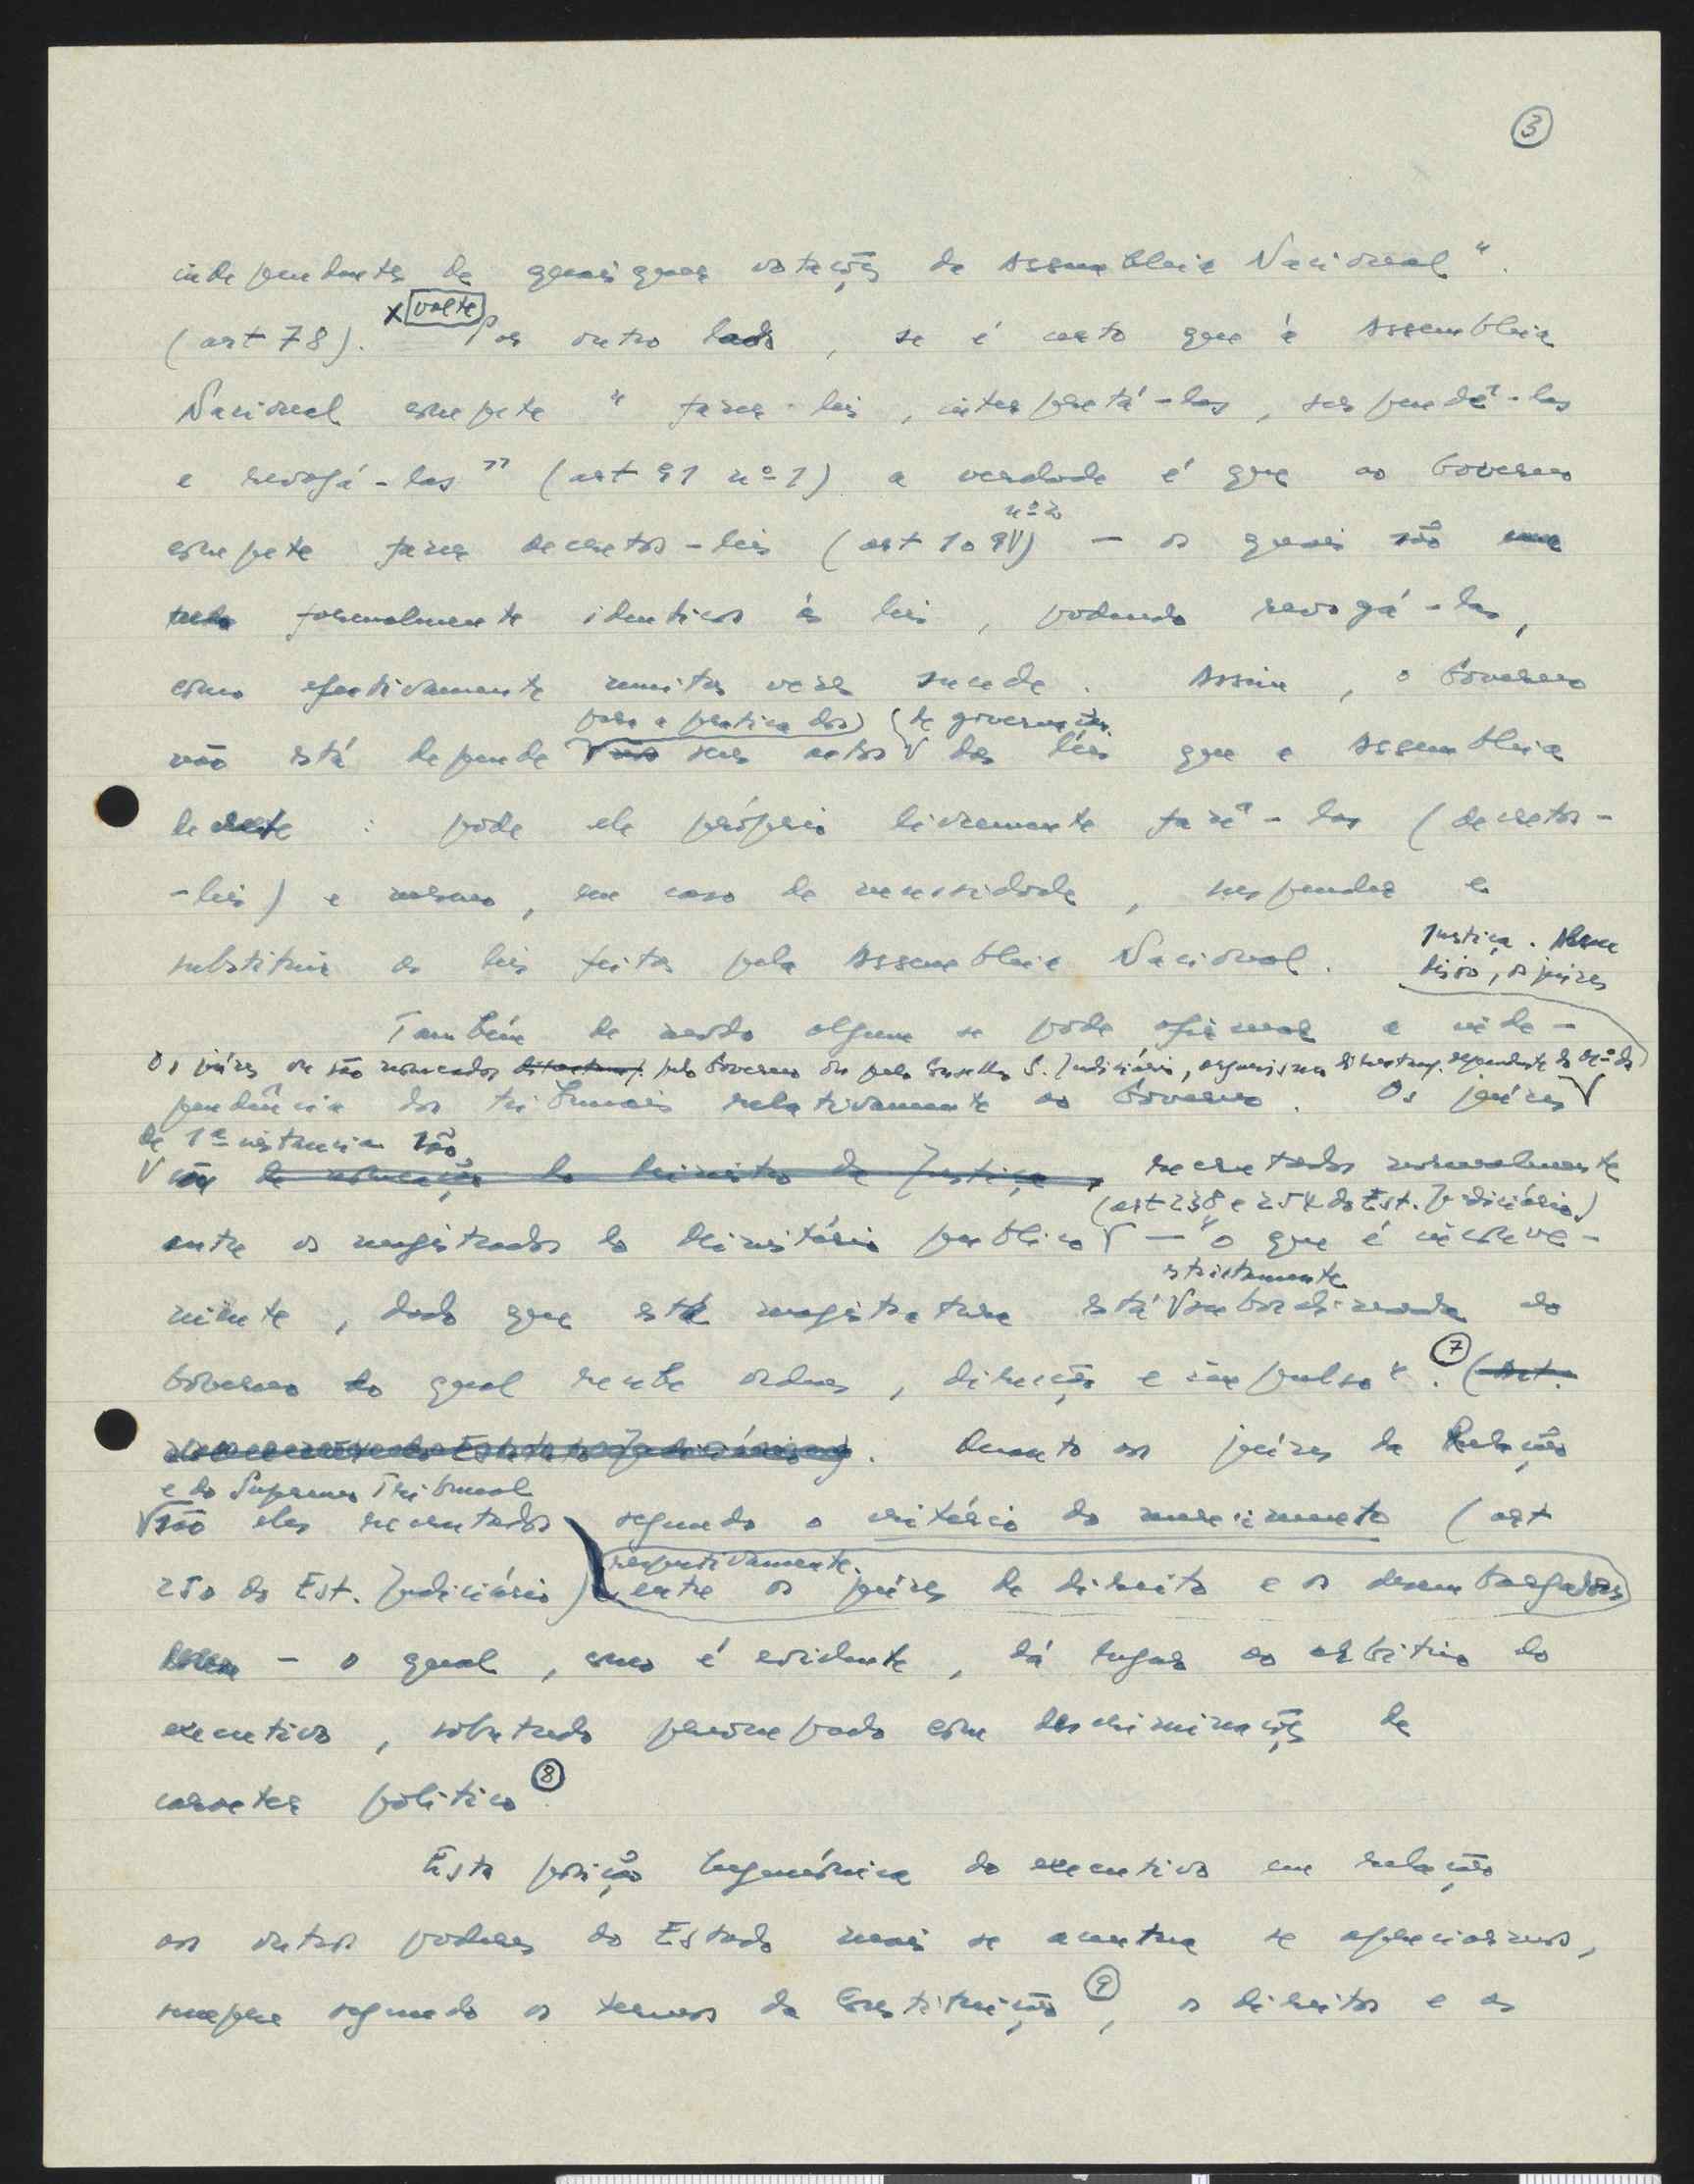 3
independentes de quaisquer votações da Assembleia Nacional".
x volte
(art 78). Por outro lado, se é certo que à Assembleia
Nacional compete " fazer leis, interpretá-las, suspendê-las
e revogá-las" (art 91 nº 1) a verdade é que ao Governo
nº 2
compete fazer decretos-leis (art 109 V) — os quais são em
tudo formalmente identicos ás leis, podendo revogá-las,
como efectivamente muitas vezes sucede. Assim, o Governo
para a pratica dos de governação
não está depende V nos seus actos V das leis que a Assembleia
decrete : pode ele próprio livremente fazê-las (decretos-
-leis) e mesmo, em caso de necessidade, suspender e
substituir as leis feitas pela Assembleia Nacional.
Justiça. Alem
disso, os juizes
Tambêm de modo algum se pode afirmar a inde-
Os juizes ou são nomeados directam. pelo Governo ou pelo Conselho S. Judiciário, organismo directam. dependente do Mº da
pendência dos tribunais relativamente ao Governo. Os juizes V
de 1ª instancia são
V são de nomeação do Ministro da Justiça, recrutados normalmente
(art 238 e 254 do Est. Judiciário)
entre os magistrados do Ministério publico V — "o que é inconve-
estrictamente
niente, dado que esta magistratura está V subordinada ao
Governo do qual recebe ordens, direcção e impulso". 7 (Art.
do Estatuto Judiciário). Quanto aos juizes da Relação
e do Supremo Tribunal
V são eles recrutados segundo o critério do merecimento (art
respectivamente
250 do Est. Judiciário) entre os juizes de direito e os desembargadores
— o qual, como é evidente, dá lugar ao arbitrio do
executivo, sobretudo preocupado com descriminações de
caracter politico 8.
Esta posição hegemónica do executivo em relação
aos outros poderes do Estado mais se acentua se apreciarmos,
sempre segundo os termos da Constituição 9, os direitos e as